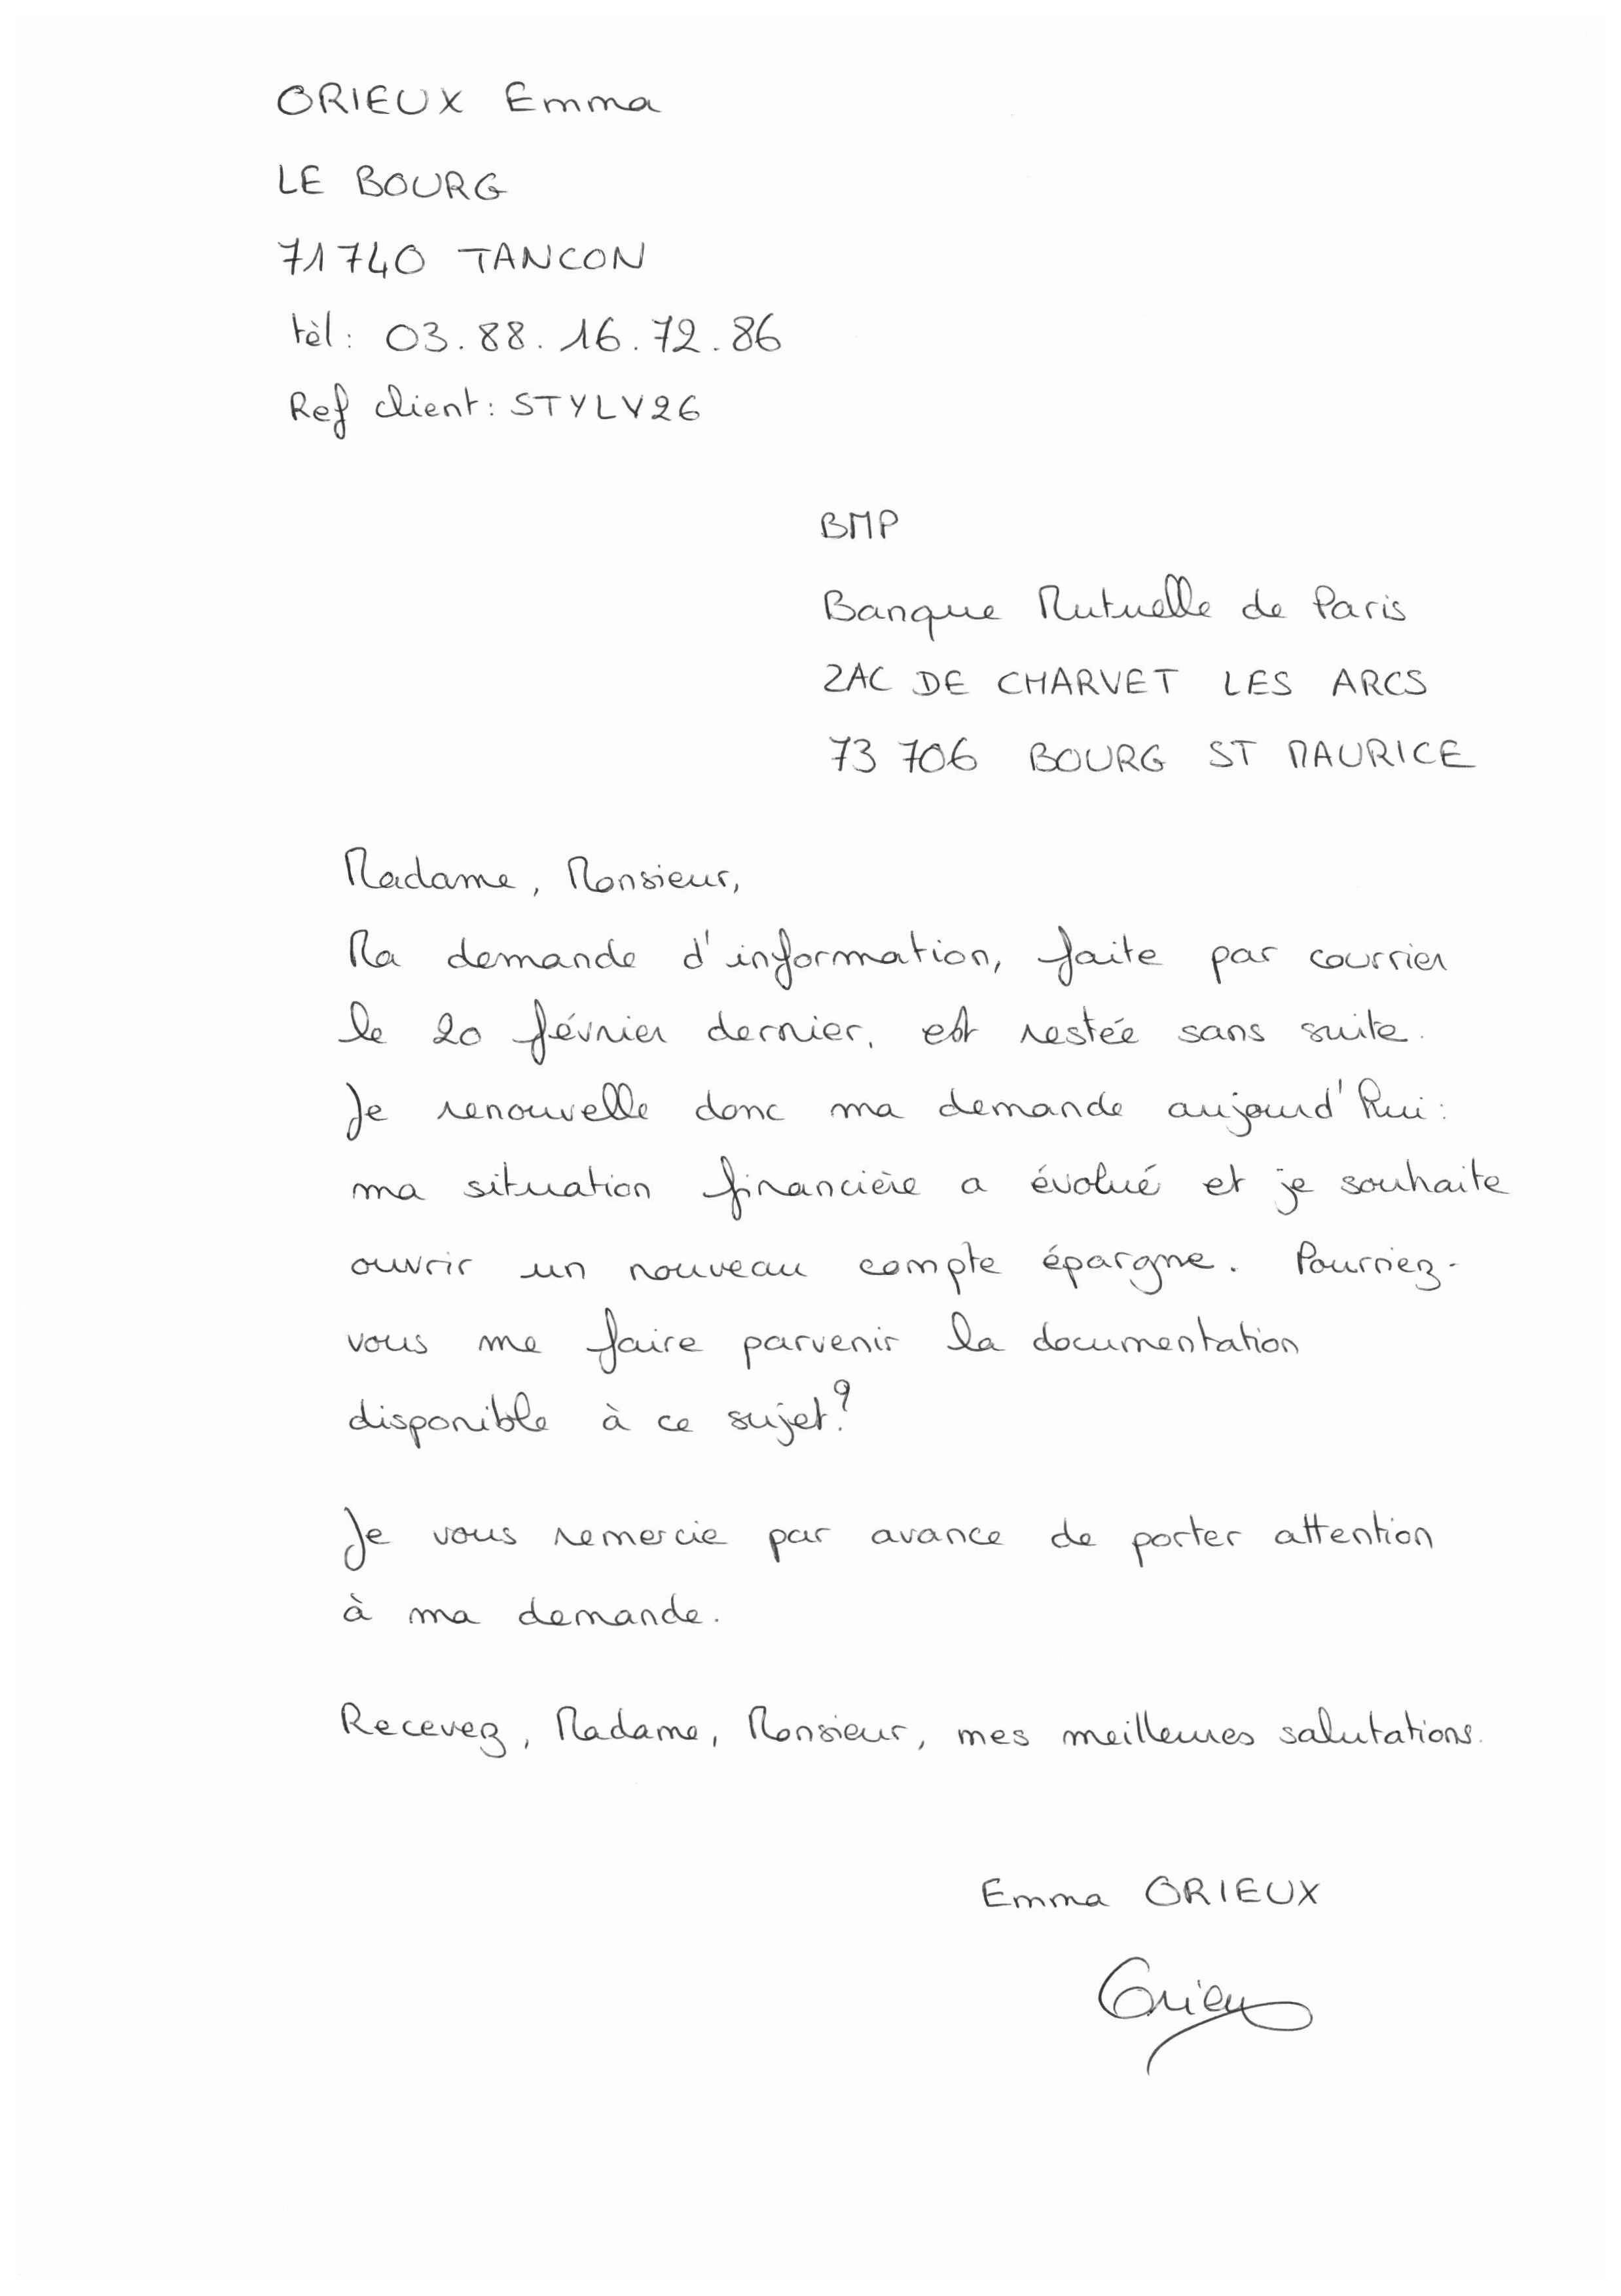 ORIEUX Emma
LE BOURG
71740 TANCON
tèl: 03.88.16.72.86
Ref client: STYLV26
BMP
Banque Mutuelle de Paris
ZAC DE CHARVET LES ARCS
73 706 BOURG ST MAURICE
Madame, Monsieur,
Ma demande d'information, faite par courrier
le 20 février dernier, est restée sans suite.
Je renouvelle donc ma demande aujourd'hui:
ma situation financière a évolué et je souhaite
ouvrir un nouveau compte épargne. Pourriez-
vous me faire parvenir la documentation
disponible à ce sujet?
Je vous remercie par avance de porter attention
à ma demande.
Recevez, Madame, Monsieur, mes meilleures salutations.
Emma ORIEUX
Orieux